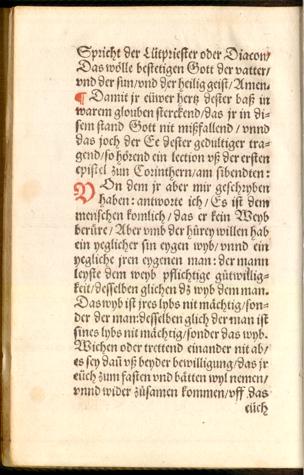 Spricht der Lütpriester oder Diacon/
Das wölle bestetigen Gott der vatter/
vnd der sun/vnd der heilig geist/Amen.
¶ Damit jr eüwer hertz dester baß in
warem glouben sterckend/das jr in di-
sem stand Gott nit mißfallend/vnnd
das joch der Ee dester gedultiger tra-
gend/so hörend ein lection vß der ersten
epistel zun Corinthern/am sibendten:
VOn dem jr aber mir geschryben
haben: antworte ich/Es ist dem
menschen komlich/das er kein Weyb
berüre/Aber vmb der hürey willen hab
ein yeglicher sin eygen wyb/vnnd ein
yegliche jren eygenen man: der mann
leyste dem weyb pflichtige gütwillig-
keit/desselben glichen dz wyb dem man.
Das wyb ist jres lybs nit mächtig/son-
der der man:desselben glich der man ist
sines lybs nit mächtig/sonder das wyb.
Wichen oder trettend einander nit ab/
es sey dañ vß beyder bewilligung/das jr
eüch zum fasten vnd bätten wyl nemen/
vnnd wider züsamen kommen/vff das
eüch